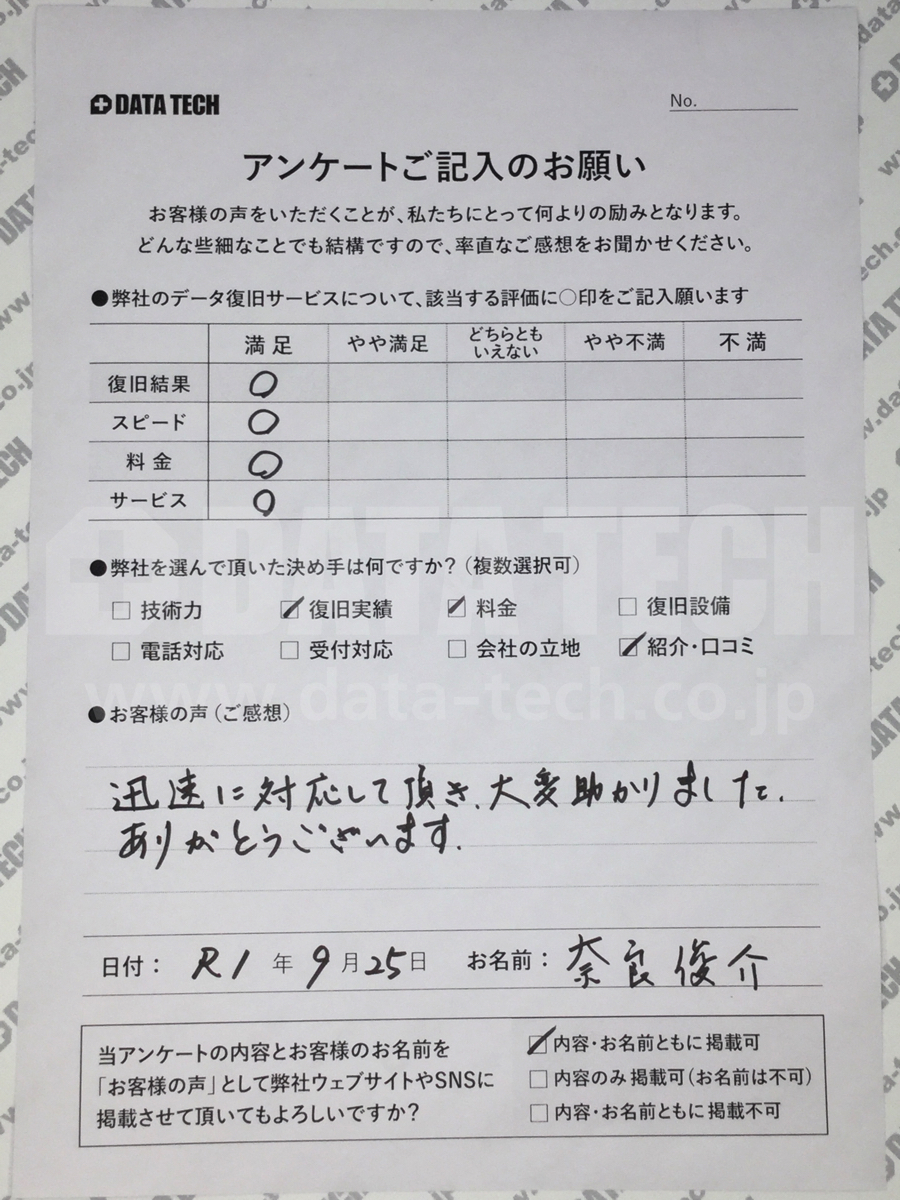 DATA TECH
No.
アンケートご記入のお願い
お客様の声をいただくことが、私たちにとって何よりの励みとなります。
どんな些細なことでも結構ですので、率直なご感想をお聞かせください。
●弊社のデータ復旧サービスについて、該当する評価に○印をご記入願います
満足 やや満足 どちらとも いえない やや不満 不満
復旧結果 ○
スピード ○
料金 ○
サービス ○
●弊社を選んで頂いた決め手は何ですか?(複数選択可)
□ 技術力 ☑ 復旧実績 ☑ 料金 □ 復旧設備
□ 電話対応 □ 受付対応 □ 会社の立地 ☑ 紹介・口コミ
●お客様の声(ご感想)
迅速に対応して頂き、大変助かりました。
ありがとうございます。
日付: R1年 9月25日 お名前: 奈良俊介
当アンケートの内容とお客様のお名前を
「お客様の声」として弊社ウェブサイトやSNSに
掲載させて頂いてもよろしいですか?
☑ 内容・お名前ともに掲載可
□ 内容のみ掲載可(お名前は不可)
□ 内容・お名前ともに掲載不可
DATA TECH
www.data-tech.co.jp